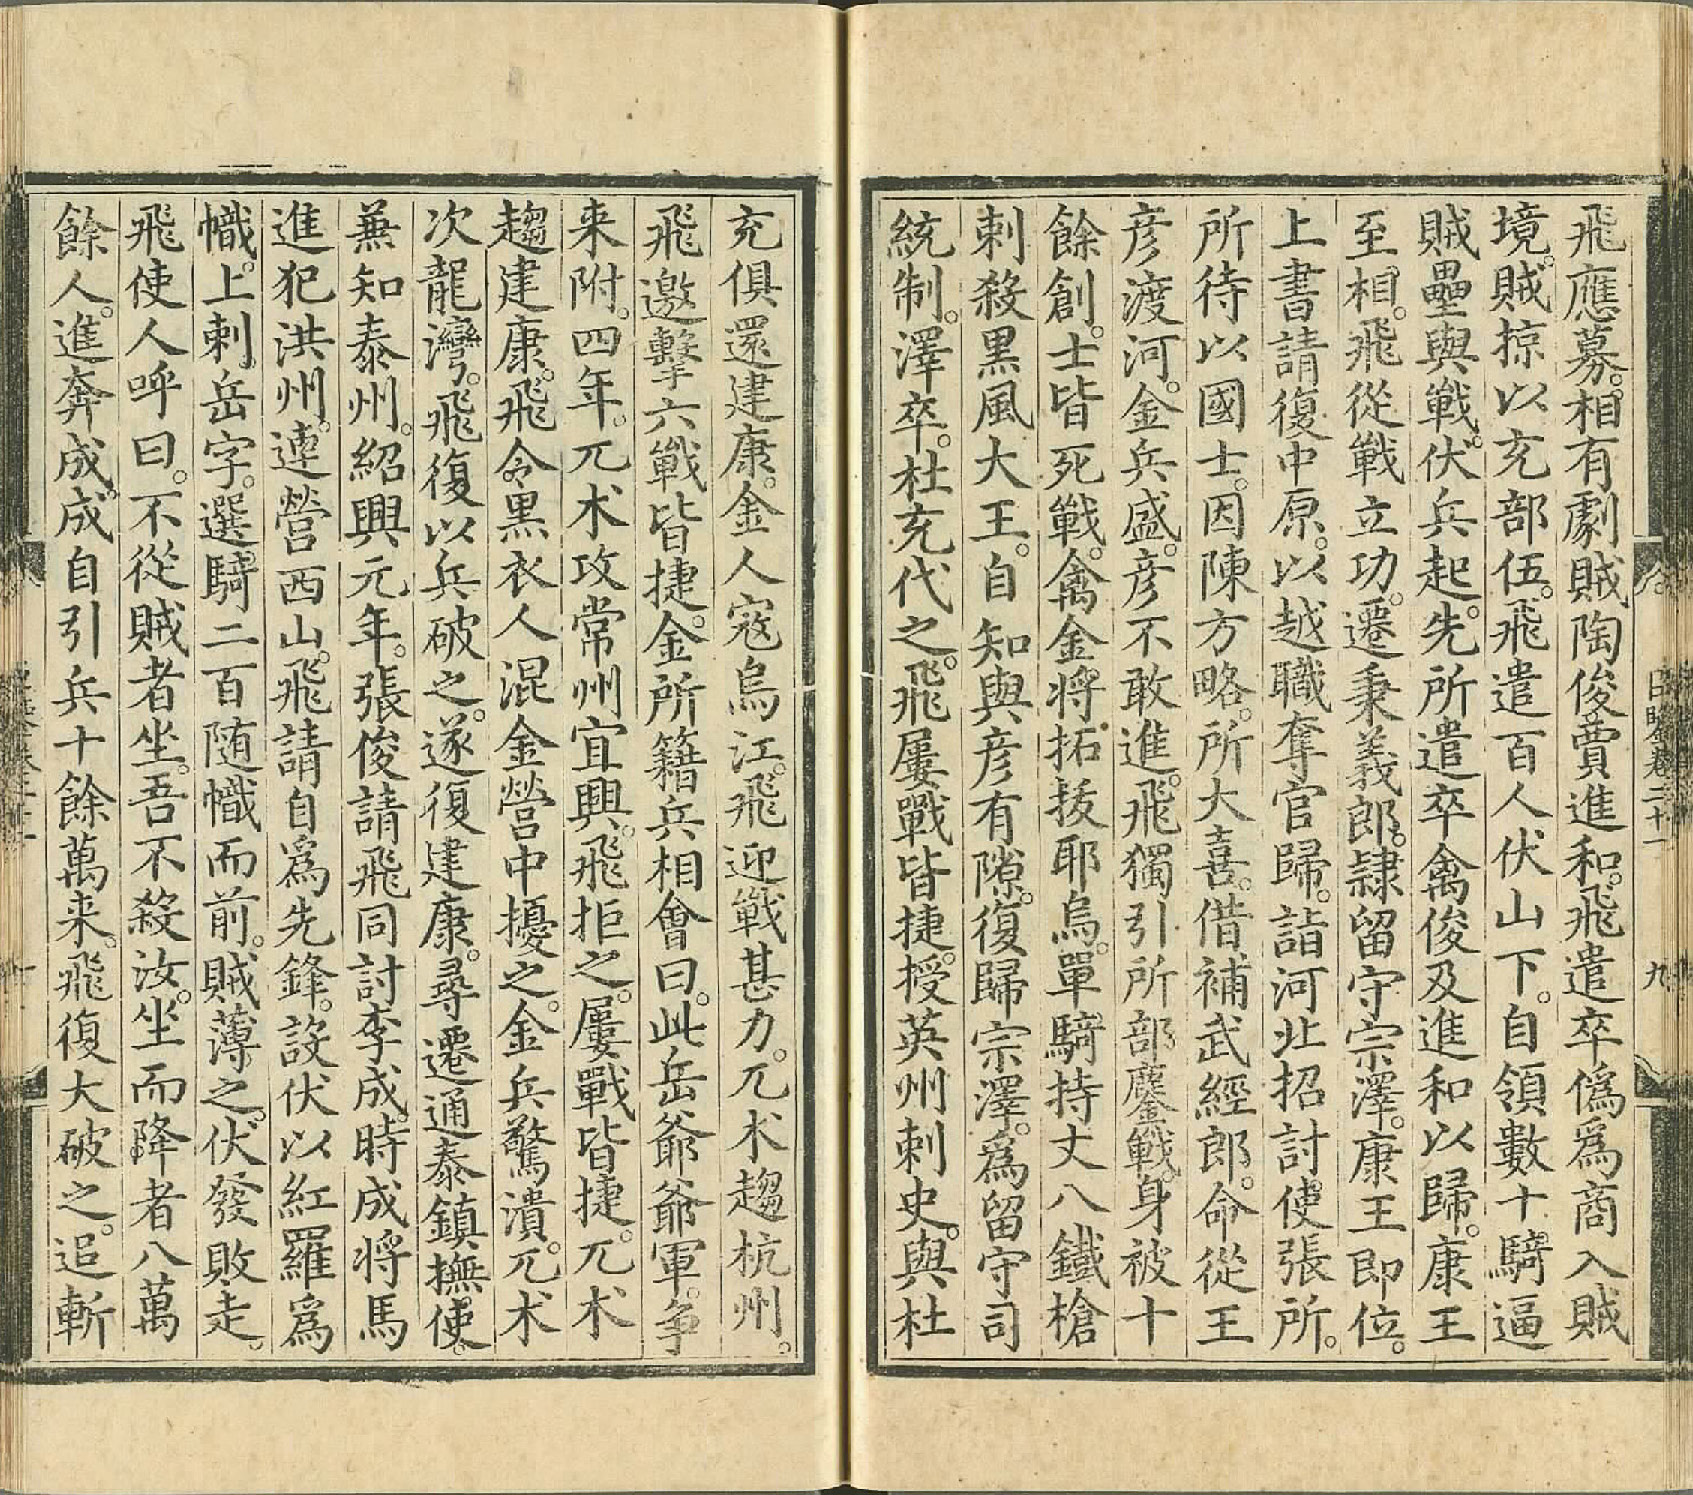 飛應募。相有劇賊陶俊賈進和。飛遣卒僞爲商入賊
境。賊掠以充部伍。飛遣百人伏山下。自領數十騎逼
賊壘與戰。伏兵起。先所遣卒禽俊及進和以歸。康王
至相。飛從戰立功。遷秉義郎。隸留守宗澤。康王即位。
上書請復中原。以越職奪官歸。詣河北招討使張所。
所待以國士。因陳方略。所大喜。借補武經郎。命從王
彦渡河。金兵盛。彦不敢進。飛獨引所部鏖戰。身被十
餘創。士皆死戰。禽金將拓拔耶烏。單騎持丈八鐵槍
刺殺黒風大王。自知與彦有隙。復歸宗澤。爲留守司
統制。澤卒。杜充代之。飛屢戰皆捷。授英州刺史。與杜
充俱還建康。金人寇烏江。飛迎戰甚力。兀朮趨杭州。
飛邀擊六戰皆捷。金所籍兵相會曰。此岳爺爺軍。争
来附。四年。兀朮攻常州宜興。飛拒之。屢戰皆捷。兀朮
趨建康。飛令黒衣人混金營中擾之。金兵驚潰。兀朮
次龍灣。飛復以兵破之。遂復建康。尋遷通泰鎮撫使。
兼知泰州。紹興元年。張俊請飛同討李成。時成將馬
進犯洪州。連營西山。飛請自爲先鋒。設伏以紅羅爲
幟。上刺岳字。選騎二百随幟而前。賊薄之。伏發敗走。
飛使人呼曰。不從賊者坐。吾不殺汝。坐而降者八萬
餘人。進奔成。成自引兵十餘萬来。飛復大破之。追斬
九